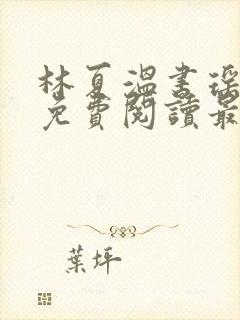 林夏溫書瑤
免費閱讀最
葉坪